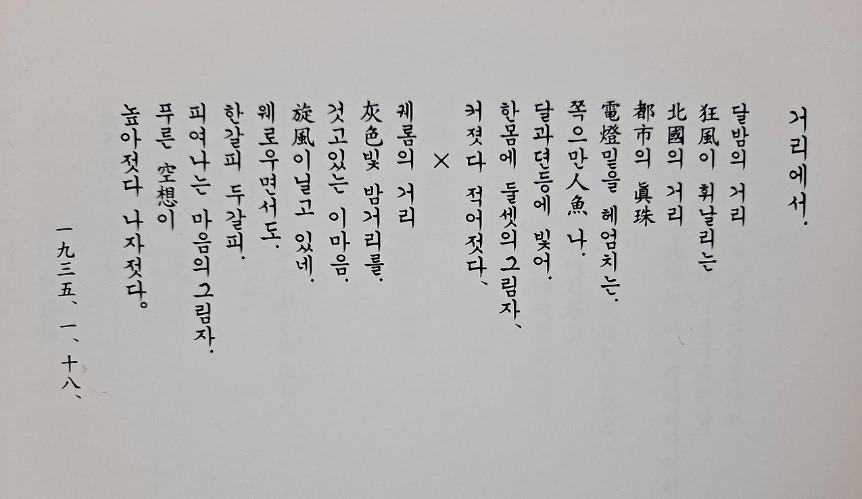 거리에서.
달밤의 거리
狂風이 휘날리는
北國의 거리
都市의 眞珠
電燈밑을 헤엄치는.
쪽으만人魚 나.
달과뎐등에 빛어.
한몸에 둘셋의그림자、
커젓다 적어젓다、
×
궤롬의 거리
灰色빛 밤거리를.
것고있는 이마음.
旋風이닐고 있네.
웨로우면서도.
한갈피 두갈피.
피여나는 마음의그림자.
푸른 空想이
높아젓다 나자젓다。
一九三五、一、十八、